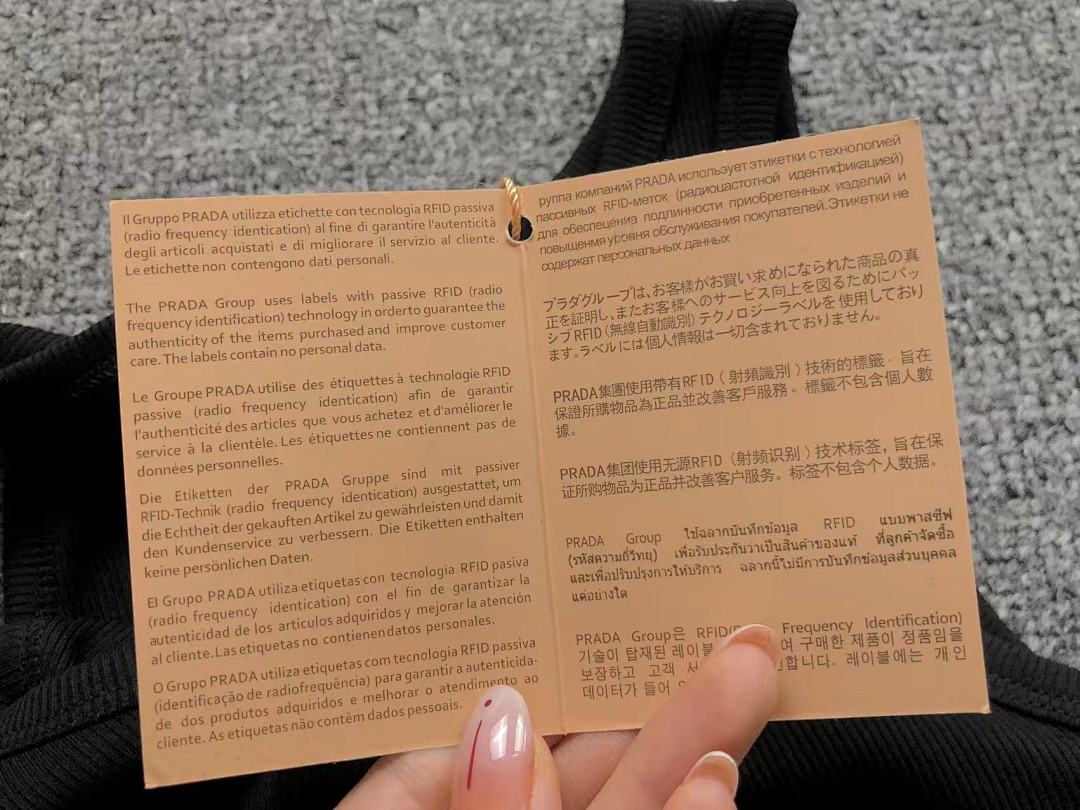 Il Gruppo PRADA utilizza etichette con tecnologia RFID passiva
(radio frequency identication) al fine di garantire l'autenticità
degli articoli acquistati e di migliorare il servizio al cliente.
Le etichette non contengono dati personali.
The PRADA Group uses labels with passive RFID (radio
frequency identification) technology in orderto guarantee the
authenticity of the items purchased and improve customer
care. The labels contain no personal data.
Le Groupe PRADA utilise des étiquettes à technologie RFID
passive (radio frequency identication) afin de garantir
l'authenticité des articles que vous achetez et d'améliorer le
service à la clientèle. Les étiquettes ne contiennent pas de
données personnelles.
Die Etiketten der PRADA Gruppe sind mit passiver
RFID-Technik (radio frequency identication) ausgestattet, um
die Echtheit der gekauften Artikel zu gewährleisten und damit
den Kundenservice zu verbessern. Die Etiketten enthalten
keine persönlichen Daten.
El Grupo PRADA utiliza etiquetas con tecnologia RFID pasiva
(radio frequency identication) con el fin de garantizar la
autenticidad de los articulos adquiridos y mejorar la atención
al cliente. Las etiquetas no contienen datos personales.
O Grupo PRADA utiliza etiquetas com tecnologia RFID passiva
(identificação de radiofrequência) para garantir a autenticida-
de dos produtos adquiridos e melhorar o atendimento ao
cliente. As etiquetas não contêm dados pessoais.
руппа компаний PRADA использует этикетки с технологией
пассивных RFID-меток (радиочастотной идентификацией)
для обеспецения подлинности приобретенных изделий и
повыщеня уровня обслуживания покупателей. Этикетки не
содержат персональных данных
プラダグループは、お客様がお買い求めになられた商品の真
正を証明し、またお客様へのサービス向上を図るためにパッ
シブRFID(無線自動識別)テクノロジーラベルを使用しており
ます。ラベルには個人情報は一切含まれておりません。
PRADA集團使用帶有RFID(射頻識別)技術的標籤·旨在
保證所購物品為正品並改善客戶服務。標籤不包含個人數
據。
PRADA集团使用无源RFID(射频识别)技术标签,旨在保
证所购物品为正品并改善客户服务。标签不包含个人数据。
PRADA Group ใช้ฉลากบันทึกข้อมูล RFID แบบพาสซีฟ
(รหัสความถี่วิทยุ) เพื่อรับประกันว่าเป็นสินค้าของแท้ ที่ลูกค้าจัดซื้อ
และเพื่อปรับปรุงการให้บริการ ฉลากนี้ไม่มีการบันทึกข้อมูลส่วนบุคคล
แต่อย่างใด
PRADA Group은 RFID Frequency Identification)
기술이 탑재된 레이블 여 구매한 제품이 정품임을
보장하고 고객 합니다. 레이블에는 개인
데이터가 들어